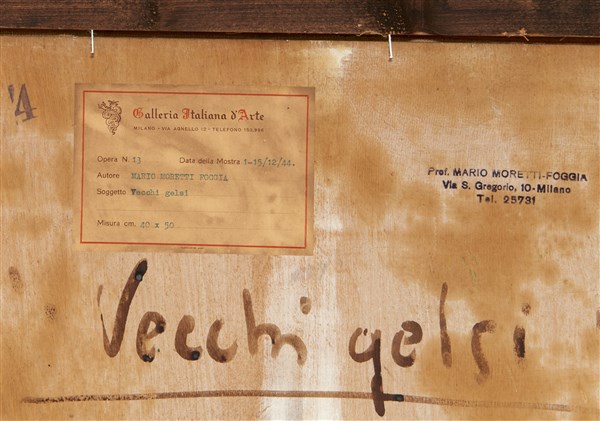 '4
Galleria Italiana d'Arte
MILANO - VIA AGNELLO 19 - TELEFONO 153.943
Opera N. 13 Data della Mostra 1-15/12/44.
Autore MARIO MORETTI FOGGIA
Soggetto Vecchi gelsi
Misura cm. 40 x 50
Prof. MARIO MORETTI-FOGGIA
Via S. Gregorio, 10-Milano
Tel. 25731
Vecchi gelsi